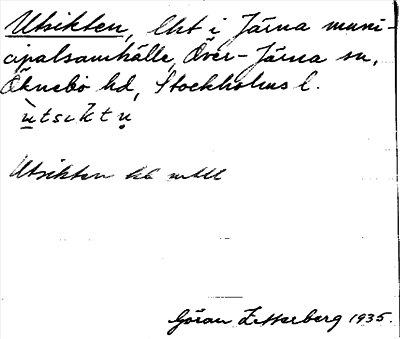 Utsikten, lht i Järna muni-
cipalsamhälle, Över-Järna sn,
Öknebo hd, Stockholms l.
ùtsiktn̥
Utsikten
Göran Zetterberg 1935.